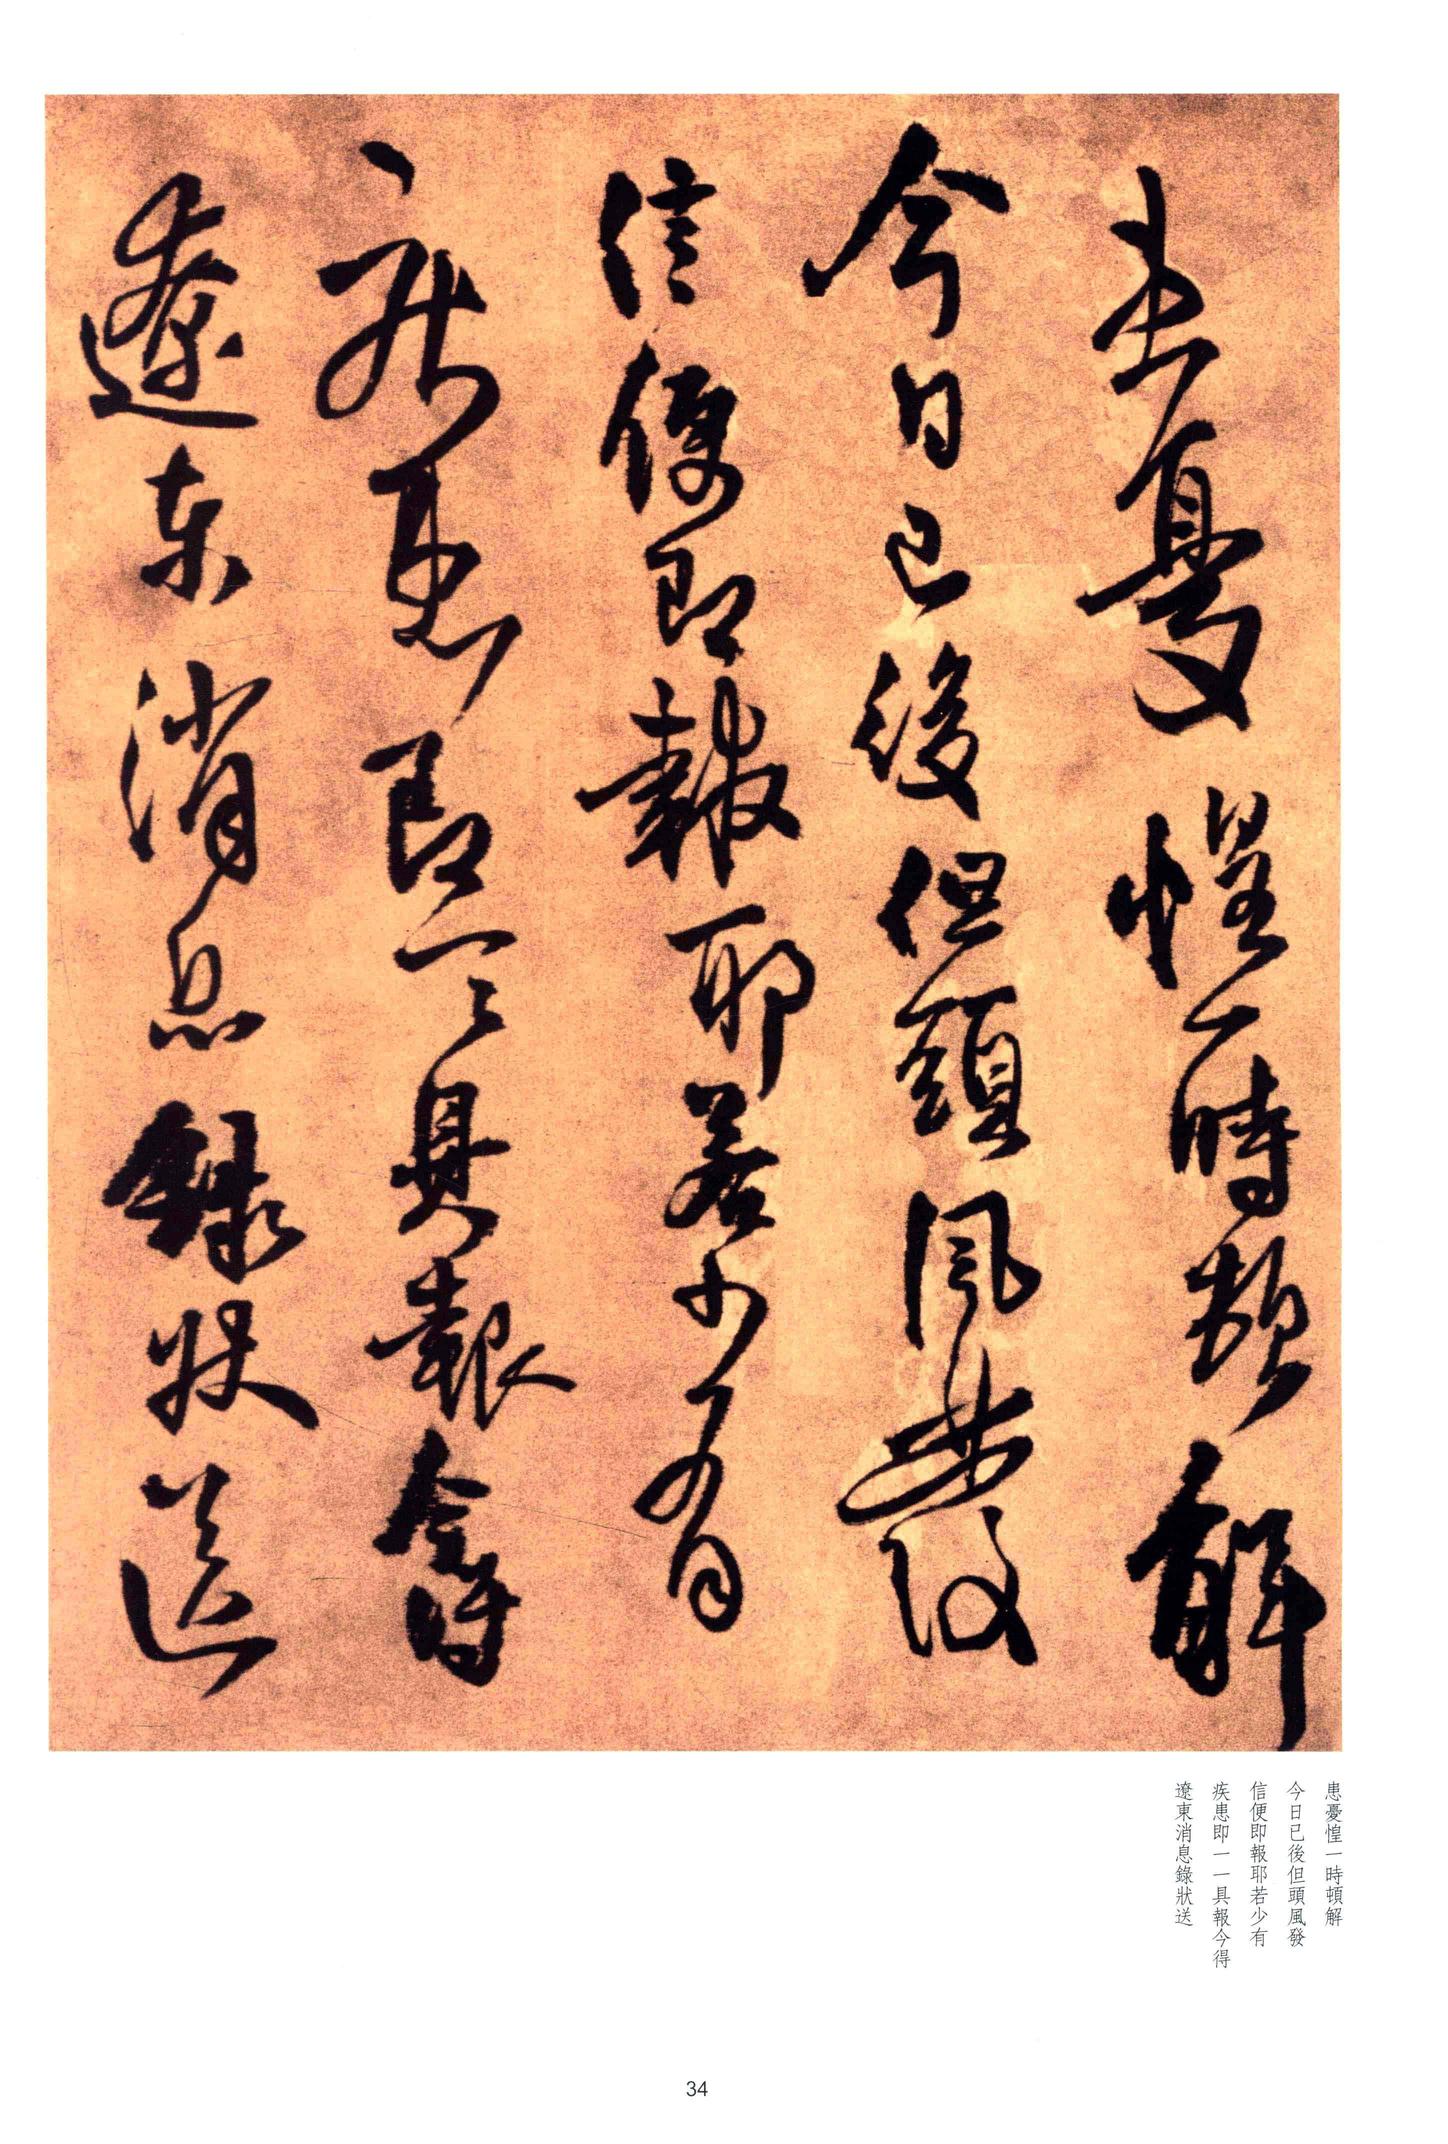 患憂惶一時頓解
今日已後但頭風發
信便即報耶若少有
疾患即一一具報今得
遼東消息錄狀送
患憂惶一時頓解
今日已後但頭風發
信便即報耶若少有
疾患即一一具報今得
遼東消息錄狀送
34